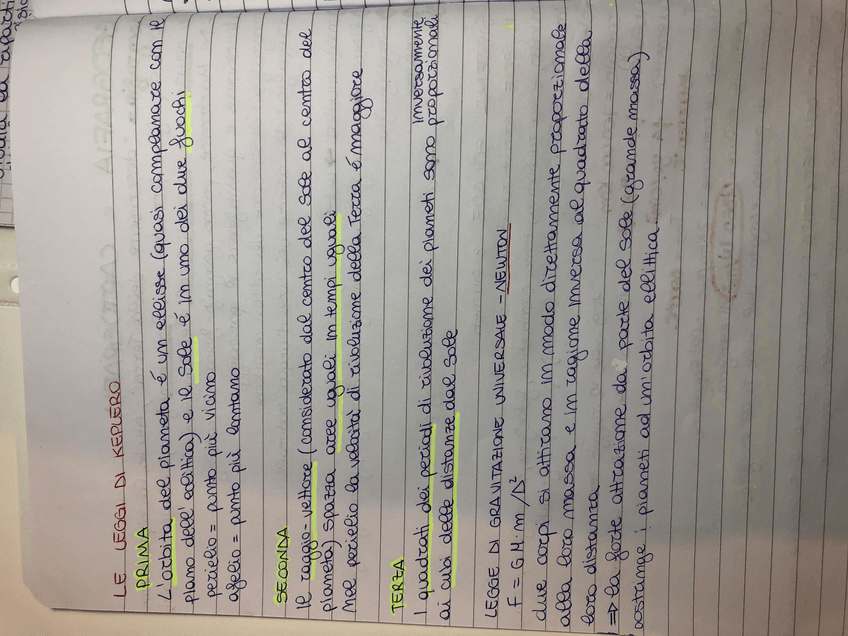 LE LEGGI DI KEPLERO
PRIMA
L'orbita del pianeta é un ellisse (quasi complanare con il
piano dell'eclittica) e il Sole é in uno dei due fuochi.
perielio = punto più vicino
afelio = punto più lontano
SECONDA
Il raggio-vettore (considerato dal centro del Sole al centro del
pianeta) spazza aree uguali in tempi uguali
Nel perielio la velocità di rivoluzione della Terra é maggiore
TERZA
I quadrati dei periodi di rivoluzione dei pianeti sono inversamente proporzionali
ai cubi delle distanze dal Sole
LEGGE DI GRAVITAZIONE UNIVERSALE - NEWTON
F = G M · m / D²
due corpi si attirano in modo direttamente proporzionale
alla loro massa e in ragione inversa al quadrato della
loro distanza
⇒ la forte attrazione da parte del Sole (grande massa)
costringe i pianeti ad un'orbita ellittica.